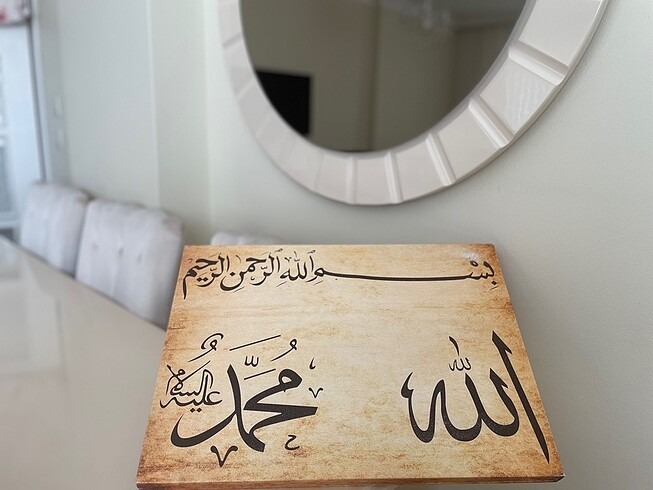 بِسْمِ اللهِ الرَّحْمنِ الرَّحِيمِ
الله
مُحَمَّد عليه السلام